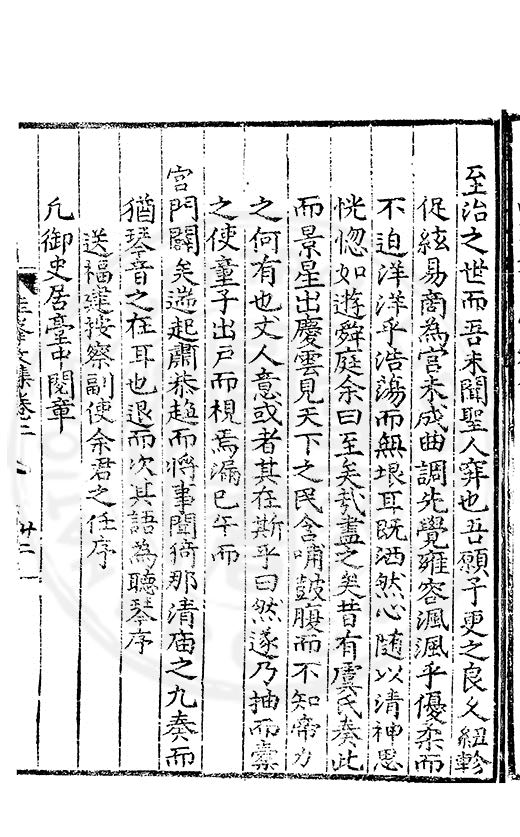 至治之世而吾未聞聖人穽也吾願子更之良久紐軫
促絃易商為宮未成曲調先覺雍容渢渢乎優柔而
不迫洋洋乎浩蕩而無垠耳既洒然心隨以清神思
恍惚如遊舜庭余曰至矣哉盡之矣昔有虞氏奏此
而景星出慶雲見天下之民含哺鼓腹而不知帝力
之何有也丈人意或者其在斯乎曰然遂乃抽而橐
之使童子出戶而視焉漏巳午而
宮門闢矣遄起肅恭趍而將事聞猗那清廟之九奏而
猶琴音之在耳也退而次其語為聽琴序
送福建按察副使余君之任序
凡御史居臺中閱章
圭峯文集卷二
廿二